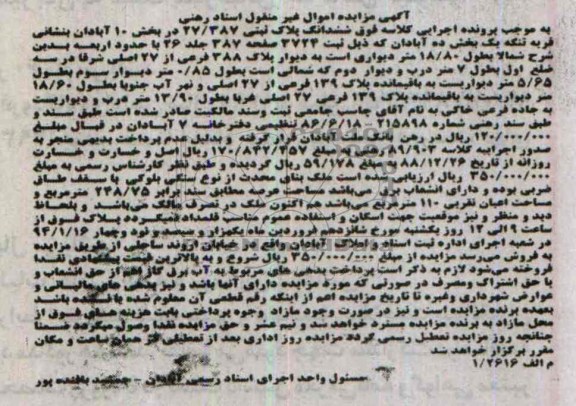 آگهی مزایده اموال غیر منقول اسناد رهنی
به موجب پرونده اجرایی کلاسه فوق ششدانگ پلاک ثبتی ۲۷/۳۸۷ در بخش ۱۰ آبادان بنشانی
قریه تنگه یک بخش ده آبادان که ذیل ثبت ۳۷۲۴ صفحه ۳۸۷ جلد ۲۶ با حدود اربعه بدین
شرح شمالا بطول ۱۸/۸۰ متر دیواری است به دیوار پلاک ۳۸۸ فرعی از ۲۷ اصلی شرقا در سه
ضلع اول بطول ۷ متر درب و دیوار دوم که شمالی است بطول ۰/۸۵ متر دیوار سوم بطول
۵/۶۵ متر دیواریست به باقیمانده پلاک ۱۳۹ فرعی از ۲۷ اصلی و نهر آب جنوبا بطول ۱۸/۶۰
متر دیواریست به باقیمانده پلاک ۱۳۹ فرعی ۲۷ اصلی غربا بطول ۱۳/۹۰ متر درب و دیواریست
به جاده فرعی خاکی به نام آقای حاسب جامعی ثبت وسند مالکیت صادر شده است طبق سند و
طبق سند رهنی شماره ۲۱۵۸۹۸ - ۸۶/۶/۱۸ تنظیمی دفترخانه ۷ آبادان در قبال مبلغ
۱۲۰/۰۰۰/۰۰۰ ریال در رهن بانک ملت آبادان قرار گرفته و بدلیل عدم پرداخت بدیهی منجر به
صدور اجراییه کلاسه ۸۹/۹۰۳ رهنی به مبلغ ۲۰۷/۸۴۲/۴۵۷ ریال اصل و خسارت و خسارت
روزانه از تاریخ ۸۸/۱۲/۲۶ به مبلغ ۵۹/۱۷۸ ریال گردیده و طبق نظر کارشناس رسمی به مبلغ
۳۵۰/۰۰۰/۰۰۰ ریال ارزیابی شده است ملک بنای محدث از نوع سنتی بلوکی با سقف طاق
ضربی بوده و دارای انشعاب برق می‌باشد مساحت عرصه مطابق سند برابر ۲۴۸/۷۵ مترمربع و
مساحت اعیان تقریبی ۱۱۰ مترمربع می‌باشد هم اکنون ملک در تصرف مالک می‌باشد و بلحاظ
دید و منظر و نیز موقعیت جهت اسکان و استفاده عموم مناسب قلمداد میگردد پلاک فوق از
ساعت ۹ الی ۱۲ روز یکشنبه مورخ شانزدهم فروردین ماه یکهزار و سیصد و نود وچهار ۹۴/۱/۱۶
در شعبه اجرای اداره ثبت اسناد و املاک آبادان واقع در خیابان اروند ساحلی از طریق مزایده
به فروش می‌رسد مزایده از مبلغ ۳۵۰/۰۰۰/۰۰۰ ریال شروع و به بالاترین قیمت پیشنهادی نقدا
فروخته می‌شود لازم به ذکر است پرداخت بدهی های مربوط به آب برق گاز اعم از حق انشعاب و
یا حق اشتراک ومصرف در صورتی که مورد مزایده دارای آنها باشد و نیز بدهی های مالیاتی و
عوارض شهرداری وغیره تا تاریخ مزایده اعم از اینکه رقم قطعی آن معلوم شده یا نشده باشد
بعهده برنده مزایده است و نیز در صورت وجود مازاد وجوه پرداختی بابت هزینه های فوق از
محل مازاد به برنده مزایده مسترد خواهد شد و نیم عشر و حق مزایده نقدا وصول میگردد ضمنا
چنانچه روز مزایده تعطیل رسمی گردد مزایده روز اداری بعد از تعطیلی در همان ساعت و مکان
مقرر برگزار خواهد شد
م الف ۱/۲۶۱۶
مسئول واحد اجرای اسناد رسمی آبادان - جمشید پاینده پور